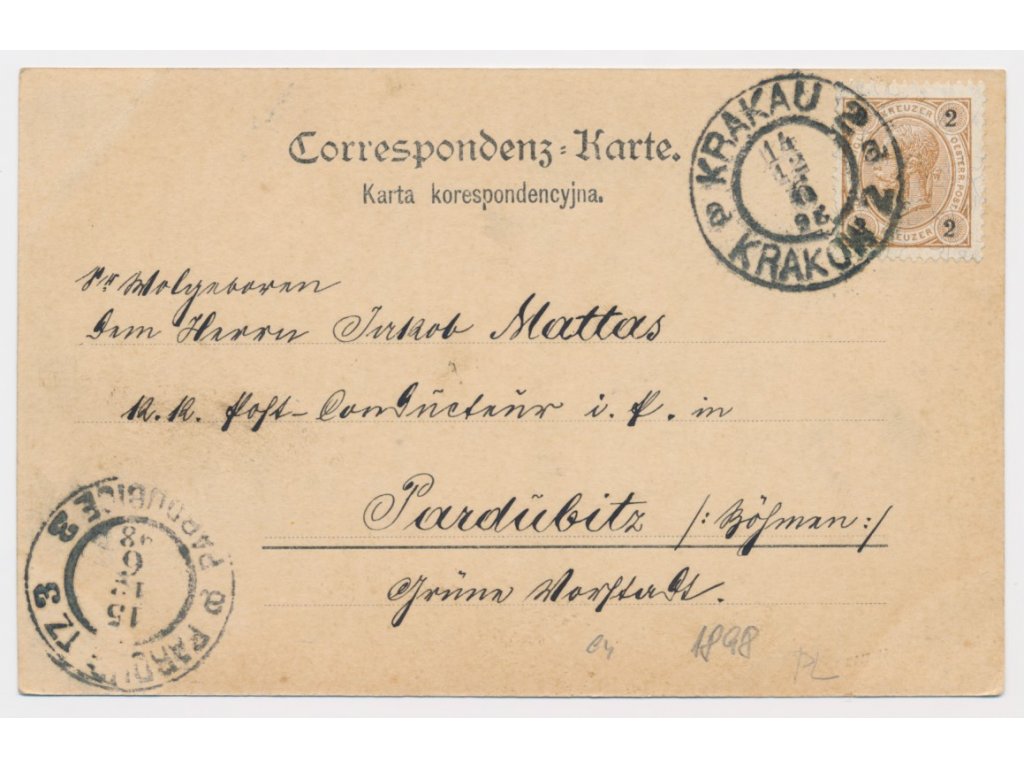 Correspondenz-Karte.
Karta korespondencyjna.
KRAKAU 2
KRAKÓW 2
14
12
6
98
2 KREUZER 2
OESTERR. POST
KREUZER 2
Sr Wolgeboren
Dem Herrn Jakob Mattas
K. K. Post-Conducteur i. P. in
Pardubitz /: Böhmen :/
Grüne Vorstadt.
PARDUBICE 3
PARDU TZ 3
15
12
6
98
1898